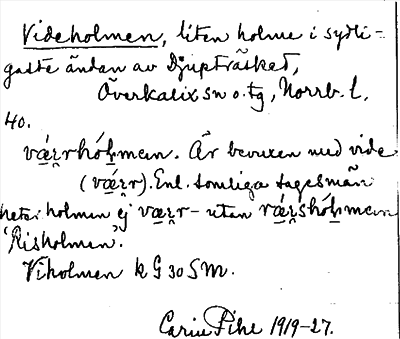 Videholmen, liten holme i sydli-
gaste ändan av Djupträsket,
Överkalix sn o. tg, Norrb. l.
40.
vǽr̯rhóḷmæn. Är bevuxen med vide
(vǽr̯r). Enl. somliga sagesmän
heter holmen ej vær̯r- utan rǽr̯shóḷmæn
'Risholmen'.
Viholmen k G 30 SM.
Carin Pihl 1919-27.